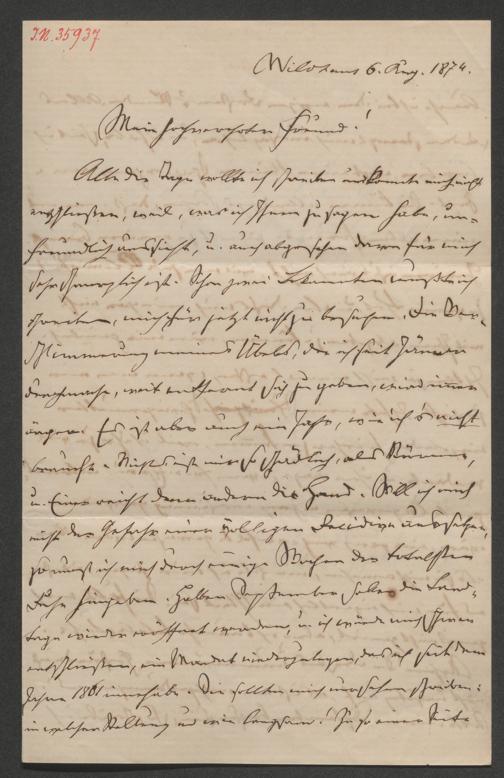 J.N. 35937
Wildhaus 6. Aug. 1874.
Mein hochverehrter Freund!
Alle die Tage wollte ich schreiben und konnte mich nicht
entschließen, weil, was ich Ihnen zu sagen habe, un-
freundlich aussieht, u. auch abgesehen davon für mich
sehr schmerzlich ist. Schon zwei Bekannten mußte ich
schreiben, mich für jetzt nicht zu besuchen. Die Ver-
schlimmerung meines Übels, die ich seit Jänner
durchmache, weit entfernt sich zu geben, wird immer
ärger. Es ist aber auch ein Jahr, wie ich's nicht
brauche. Nichts ist mir so schädlich, als Stürme,
u. Einer reicht dem andern die Hand. Will ich mich
nicht der Gefahr einer völligen Recidive aussetzen,
so muß ich mich durch einige Wochen der totalsten
Ruhe hingeben. Halben September sollen die Land-
tage wieder eröffnet werden, u. ich würde mich schwer
entschließen, ein Mandat niederzulegen, das ich seit dem
Jahre 1861 innehabe. Sie sollten mich nur sehen schreiben:
in welcher Stellung und wie langsam! Zu so einer Seite